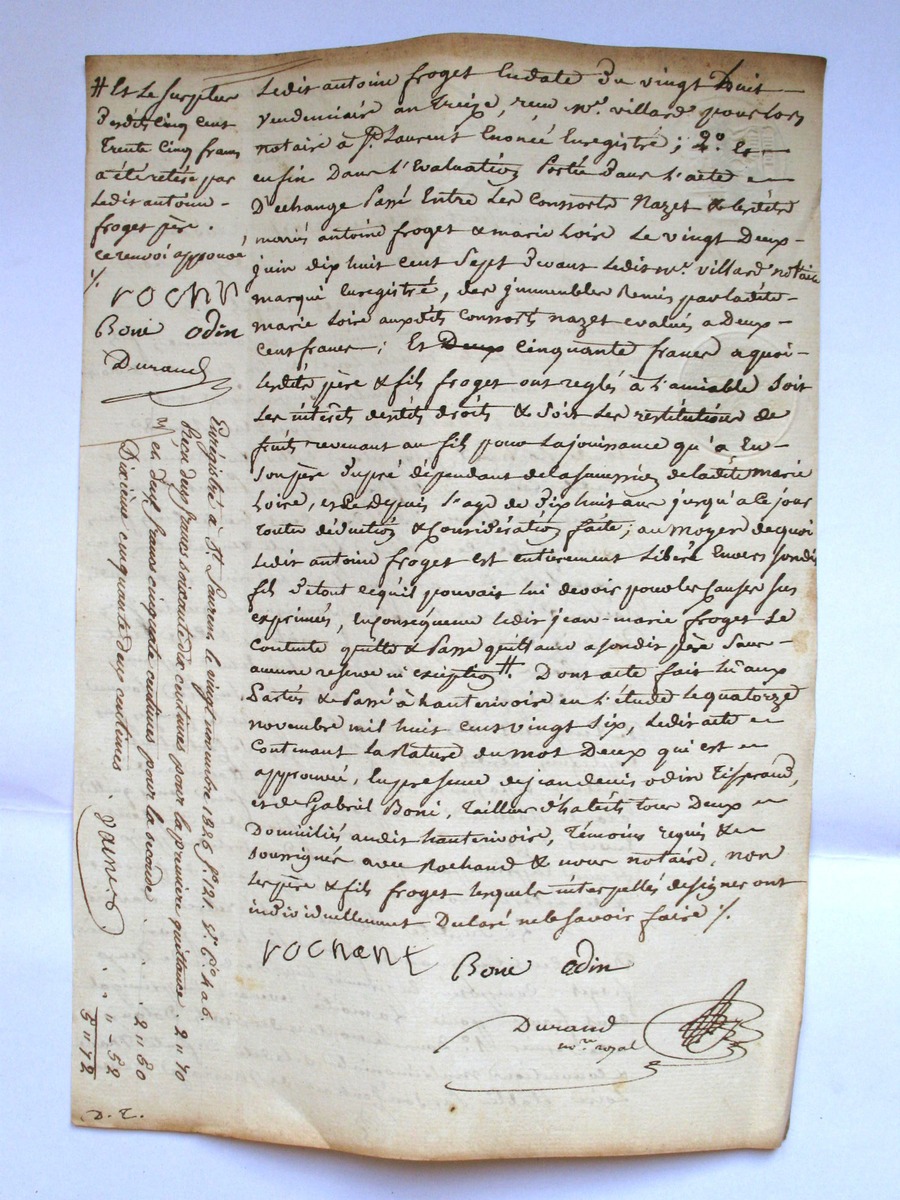 ledit antoine froget en date du vingt huit
vendemiaire an treize, reçu Mr. villard pour lors
notaire à St. Laurent Enoncé Enregistré ; 2.º Et
enfin Dans l'Evaluation Portée Dans l'acte
D'echange Passé Entre Les Consorts Nazet & lesdits
mariés antoine froget & marie Loire Le vingt Deux
juin dix huit cent Sept Devant Ledit Mr. villard notaire
marqué Enregistré, des jmmeubles Remis par ladite
marie Loire auxdits Consorts nazet evalués a Deux
cent francs ; Et Deux cinquante francs a quoi
Lesdits père & fils froget ont reglés à l'amiable Soit
Les intérets desdits droits & Soit Les restitutions de
fruits revenant au fils pour La jouissance qu'a Eu
Son père Du pré dépendant de la de ladite marie
Loire, et Ce depuis l'age de Dix huit ans jusqu'a ce jour
toutes déductions & Considérations faites ; au moyen de quoi
Ledit antoine froget est entièrement Libéré Envers Sondit
fils De tout ce qu'il pouvait lui devoir pour les Causes Sus
exprimées, En conséquence Ledit jean-marie froget Se
Contente quitte & Passe quittance a Sondit père Sans
aucune reserve ni exception #. Dont acte fait Lu aux
Parties & Passé à hauterivoire en l'étude Le quatorze
novembre mil huit cent vingt Six, Ledit acte
Contenant La rature du mot Deux qui est
approuvée, En presence de jean denis odin Tisserand,
et de Gabriel Boni, tailleur d'habits tous Deux
Domiciliés audit hauterivoire, témoins requis &
Soussignés avec Rochand & nous notaire, non
Les père & fils froget lesquels interpellés de signer ont
individuellement Declaré ne le Savoir faire ./.
rochant
Boni odin
Durand
no.re royal
# Et Le Surplus
Desdits Cinq Cent
Trente Cinq francs
a été retiré par
Ledit antoine
froget père.
ce renvoi approuvé
./.
Boni odin
Durand
Enregistré à St. Laurent le vingt novembre 1826 fº. 121
Reçu deux francs soixante dix centimes pour la première quittance . 2 " 70
et deux francs cinquante centimes pour la seconde . . . 2 " 50
Dixième cinquante deux centimes . . " - 52
5 " 72
D. T.